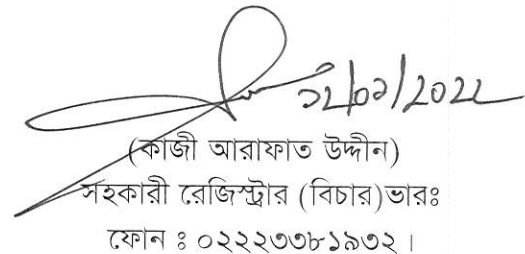 ১২/০১/2022
(কাজী আরাফাত উদ্দীন)
সহকারী রেজিস্ট্রার (বিচার)ভারঃ
ফোন ঃ ০২২২৩৩৮১৯৩২ ।